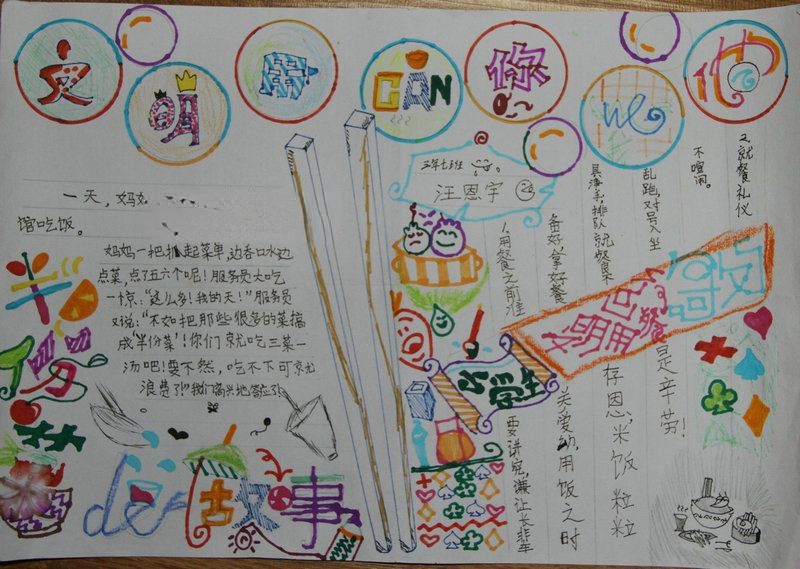 文明用CAN你we他
三年七班
汪恩宇
一天，妈
馆吃饭。
妈妈一把抓起菜单，边吞口水边
点菜，点了五六个呢！服务员大吃
一惊：“这么多！我的天！”服务员
又说：“不如把那些很多的菜搞
成‘半份菜’！你们就吃三菜一
汤吧！要不然，吃不下可就
浪费了！”我们高兴地答应了
半份菜
de故事
1.用餐之前准
备好，拿好餐
具净手，排队就餐
乱跑，对号入坐
不喧闹。
2.就餐礼仪
文明用餐
要讲究，谦让长辈
关爱幼，用饭之时
存恩，米饭粒粒
是辛劳！